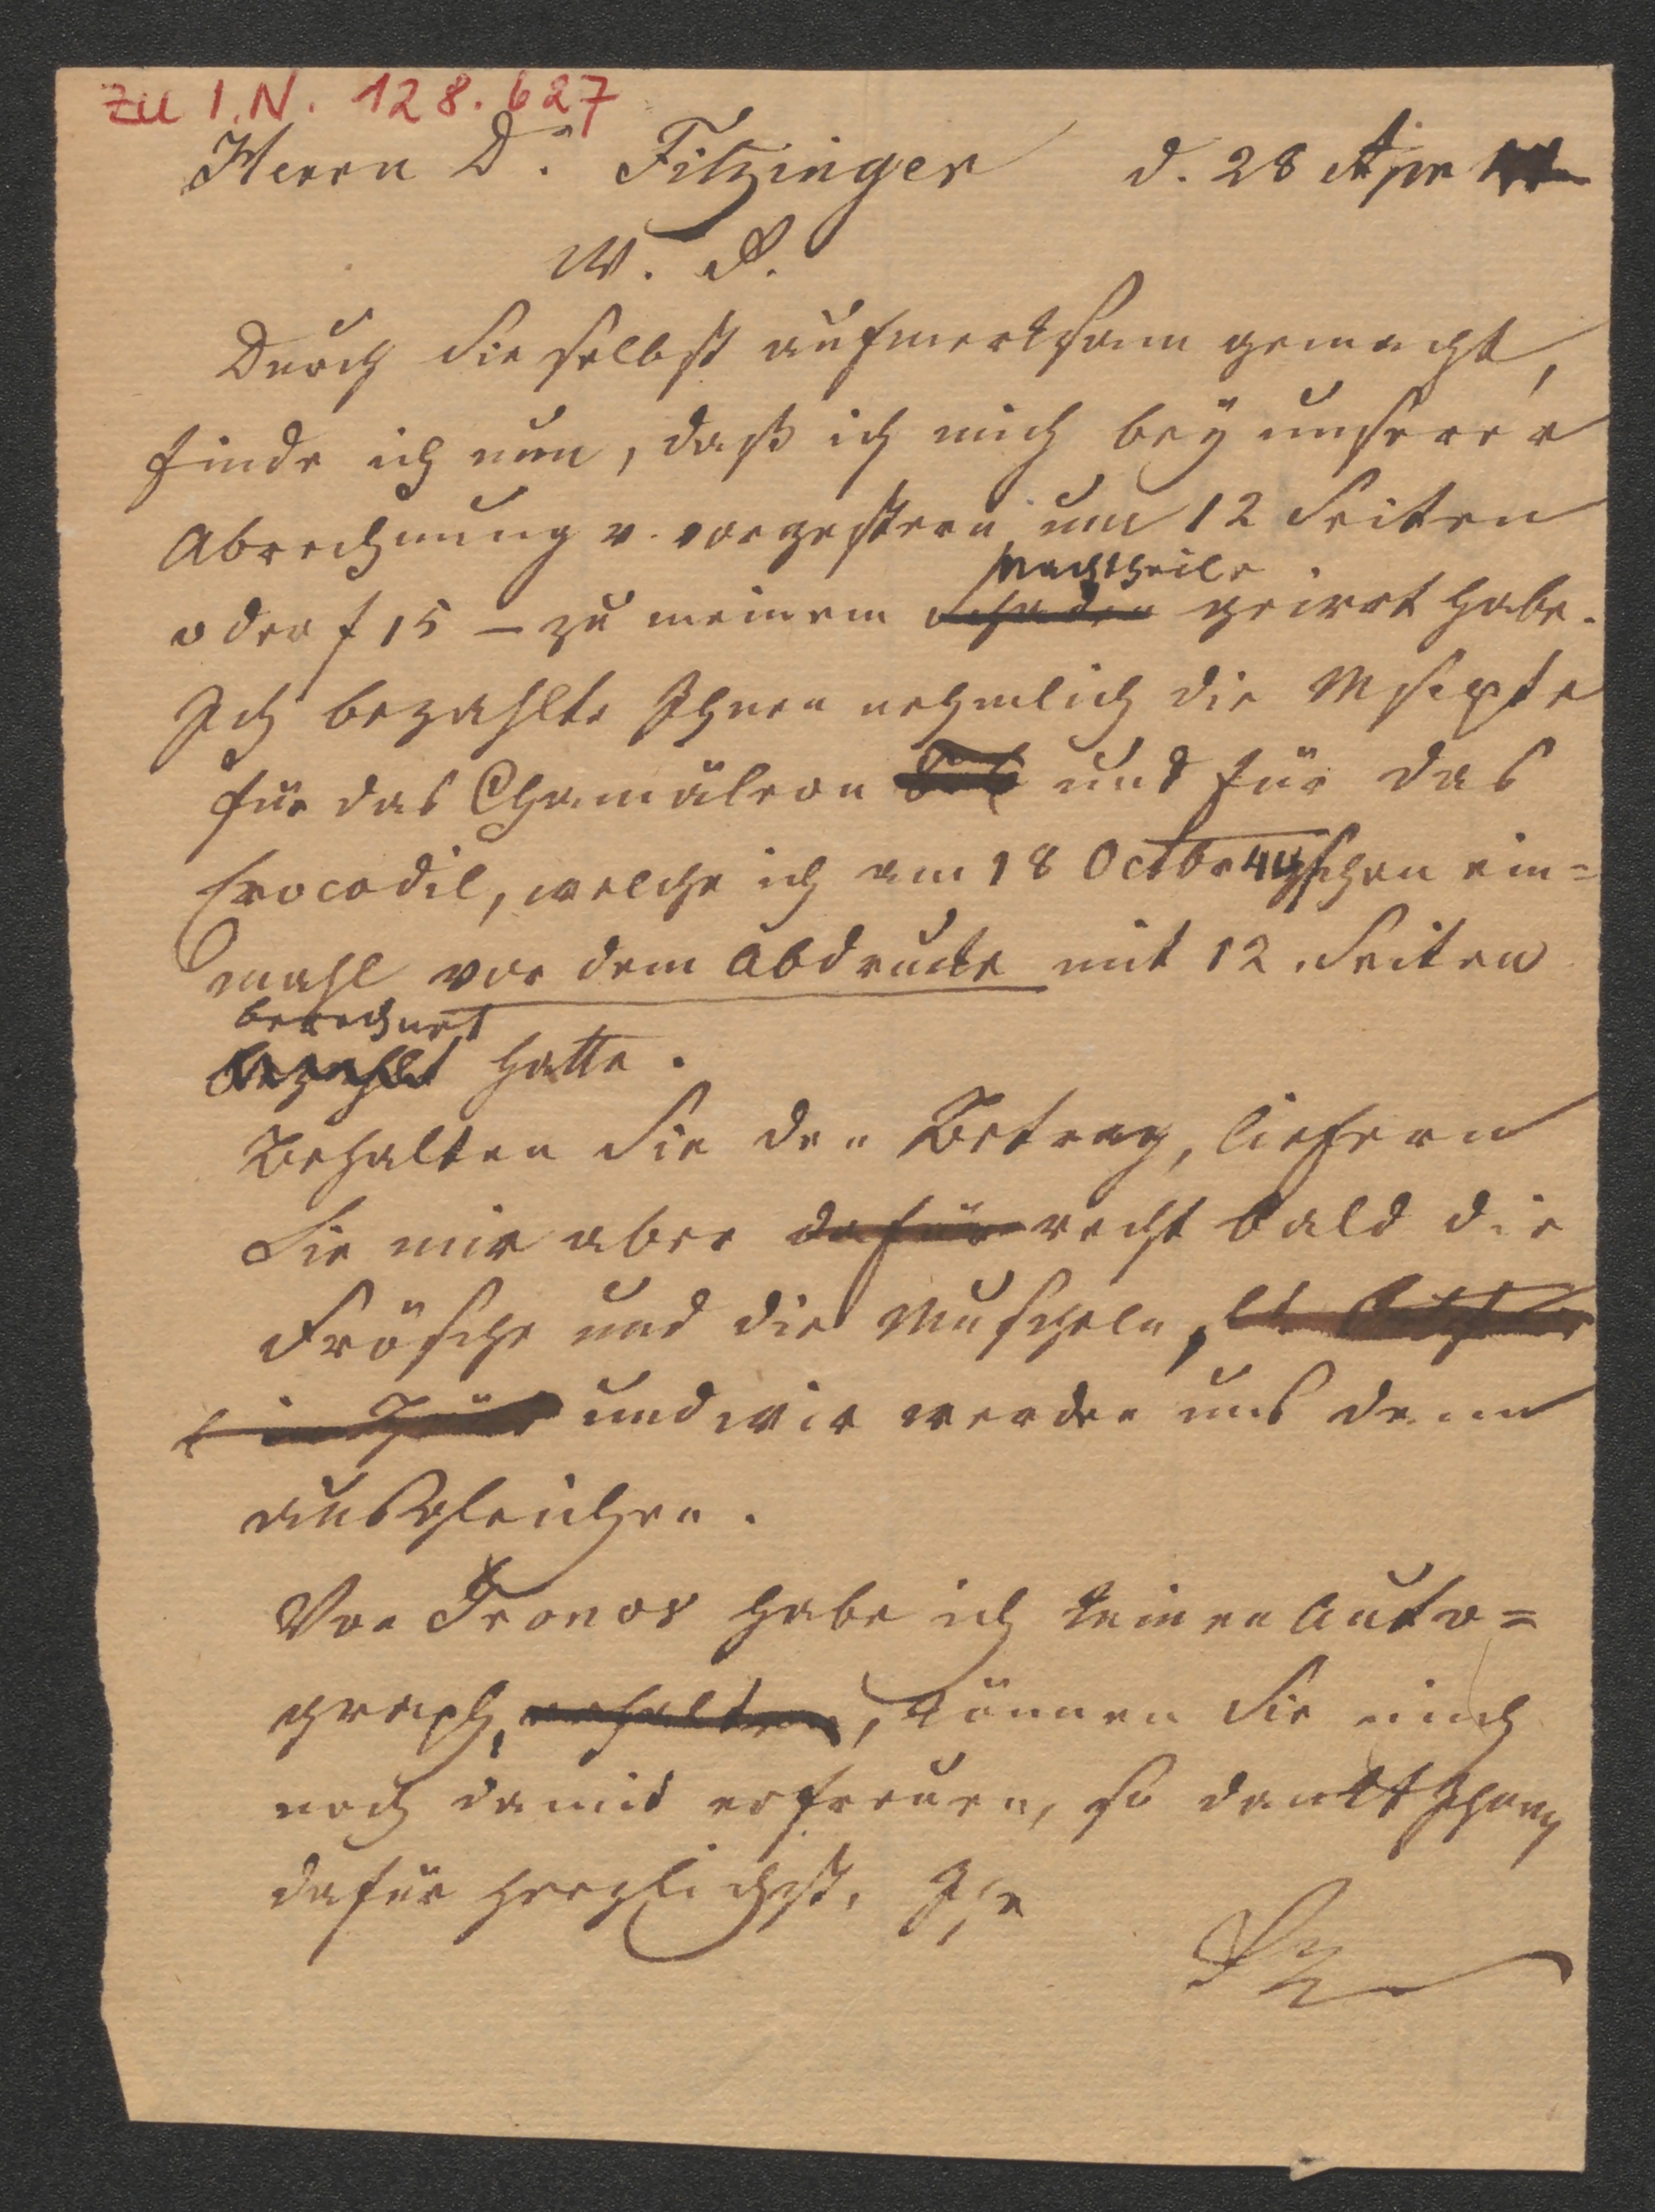 zu I.N. 128.627
Herrn Dr. Fitzinger d. 28 Apr
W. F.
Durch Sie selbst aufmerksam gemacht,
finde ich nun, daß ich mich bey unserer
Abrechnung v. vorgestern um 12 Seiten
Nachtheile
oder f 15 – zu meinem Schaden geirrt habe.
Ich bezahlte Ihnen nehmlich die Mscpte
für das Chamäleon und für das
Crocodil, welche ich am 18 Octbr 44 schon ein=
mahl vor dem Abdrucke mit 12 Seiten
berechnet
bezahlt hatte.
Behalten Sie den Betrag, liefern
Sie mir aber dafür recht bald die
Frösche und die Muscheln,
und wir werden uns dann
ausgleichen.
Von habe ich keinen Auto=
graph, erhalten, können Sie mich
noch damit erfreuen, so dankt Ihnen
dafür herzlichst, Ihr